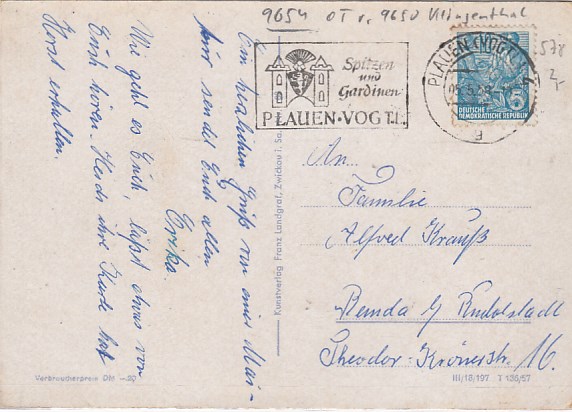 9654 OT v. 9650 Klingenthal
578
2,-
Spitzen
und
Gardinen
PLAUEN·VOGTL.
PLAUEN (VOGTL)
DEUTSCHE
DEMOKRATISCHE REPUBLIK
Ein herzlichen Gruß von einer Mai-
tour sendet Euch allen
Erika.
Wie geht es Euch, laßt etwas von
Euch hören. Heids ihre Karte hat
Horst erhalten.
An
Familie
Alfred Krauß
Remda / Rudolstadt
Theodor-Körnerstr. 16.
Kunstverlag Franz Landgraf, Zwickau i. Sa.
Verbraucherpreis DM —20
III/18/197 T 136/57